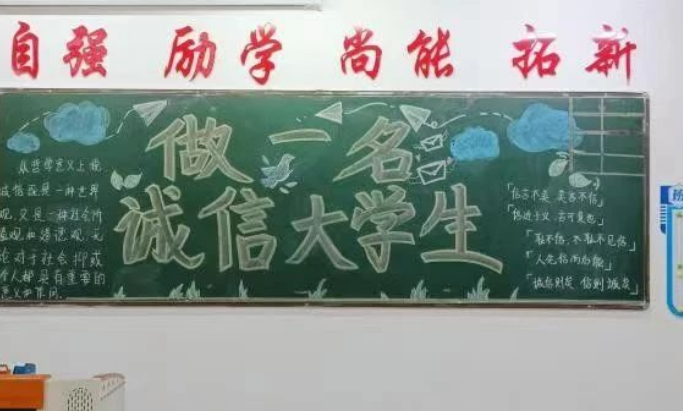 自强 励学 尚能 拓新
做一名
诚信大学生
从哲学意义上说，
诚信既是一种世界
观，又是一种社会价
值观和道德观，无
论对于社会抑或
个人都具有重要的
意义和作用。
「信言不美，美言不信」
「信近于义，言可复也」
「耻不信，不耻不见信」
「诚则信矣，信则诚矣」
班